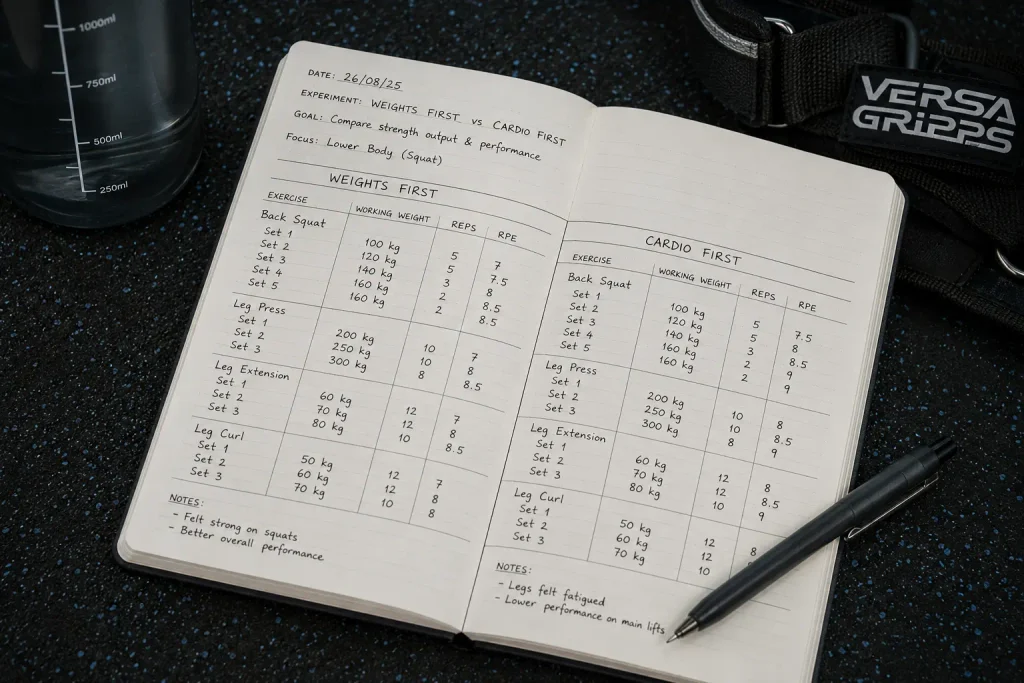 1000ml
750ml
500ml
250ml
DATE: 26/08/25
EXPERIMENT: WEIGHTS FIRST VS CARDIO FIRST
GOAL: Compare strength output & performance
Focus: Lower Body (Squat)
WEIGHTS FIRST
EXERCISE WORKING WEIGHT REPS RPE
Back Squat
Set 1 100 kg 5 7
Set 2 120 kg 5 7.5
Set 3 140 kg 3 8
Set 4 160 kg 2 8.5
Set 5 160 kg 2 8.5
Leg Press
Set 1 200 kg 10 7
Set 2 250 kg 10 8
Set 3 300 kg 8 8.5
Leg Extension
Set 1 60 kg 12 7
Set 2 70 kg 12 8
Set 3 80 kg 10 8.5
Leg Curl
Set 1 50 kg 12 7
Set 2 60 kg 12 8
Set 3 70 kg 10 8
NOTES:
- Felt strong on squats
- Better overall performance
CARDIO FIRST
EXERCISE WORKING WEIGHT REPS RPE
Back Squat
Set 1 100 kg 5 7.5
Set 2 120 kg 5 8
Set 3 140 kg 3 8.5
Set 4 160 kg 2 9
Set 5 160 kg 2 9
Leg Press
Set 1 200 kg 10 8
Set 2 250 kg 10 8.5
Set 3 300 kg 8 9
Leg Extension
Set 1 60 kg 12 8
Set 2 70 kg 12 8.5
Set 3 80 kg 10 9
Leg Curl
Set 1 50 kg 12 8
Set 2 60 kg 12
Set 3 70 kg 10
NOTES:
- Legs felt fatigued
- Lower performance on main lifts
VERSA
GRIPPS